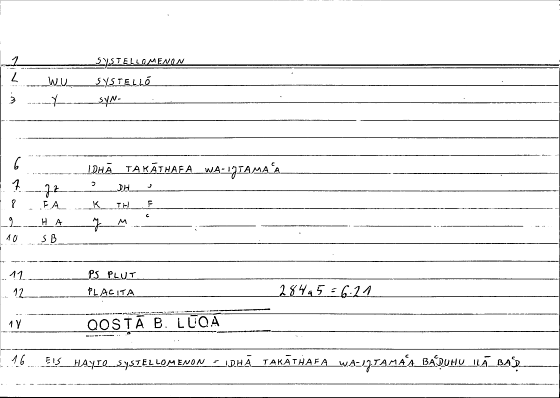 1 SYSTELLOMENON
2 WU SYSTELLŌ
3 Y SYN-
6 IDHĀ TAKĀTHAFA WA-IJTAMAʿA
7 JZ ʾ DH ʾ
8 FA K TH F
9 HA J M ʿ
10 SB
11 PS PLUT
12 PLACITA 284,5 = 6.21
14 QOSṬĀ B. LŪQĀ
16 EIS HAYTO SYSTELLOMENON = IDHĀ TAKĀTHAFA WA-IJTAMAʿA BAʿḌUHU ILĀ BAʿḌ